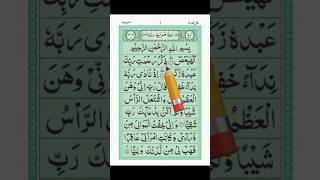 بِسْمِ اللّٰهِ الرَّحْمٰنِ الرَّحِيْمِ
كٓهٰيٰعٓصٓ ذِكْرُ رَحْمَتِ رَبِّكَ
عَبْدَهٗ زَكَرِيَّا اِذْ نَادٰى رَبَّهٗ
نِدَآءً خَفِيًّا قَالَ رَبِّ اِنِّيْ وَهَنَ
الْعَظْمُ مِنِّيْ وَاشْتَعَلَ الرَّاْسُ
شَيْبًا وَّلَمْ اَكُنْۢ بِدُعَآئِكَ رَبِّ
شَقِيًّا وَاِنِّيْ خِفْتُ الْمَوَالِيَ مِنْ
وَّرَآءِيْ وَكَانَتِ امْرَاَتِيْ عَاقِرًا
فَهَبْ لِيْ مِنْ لَّدُنْكَ وَلِيًّا